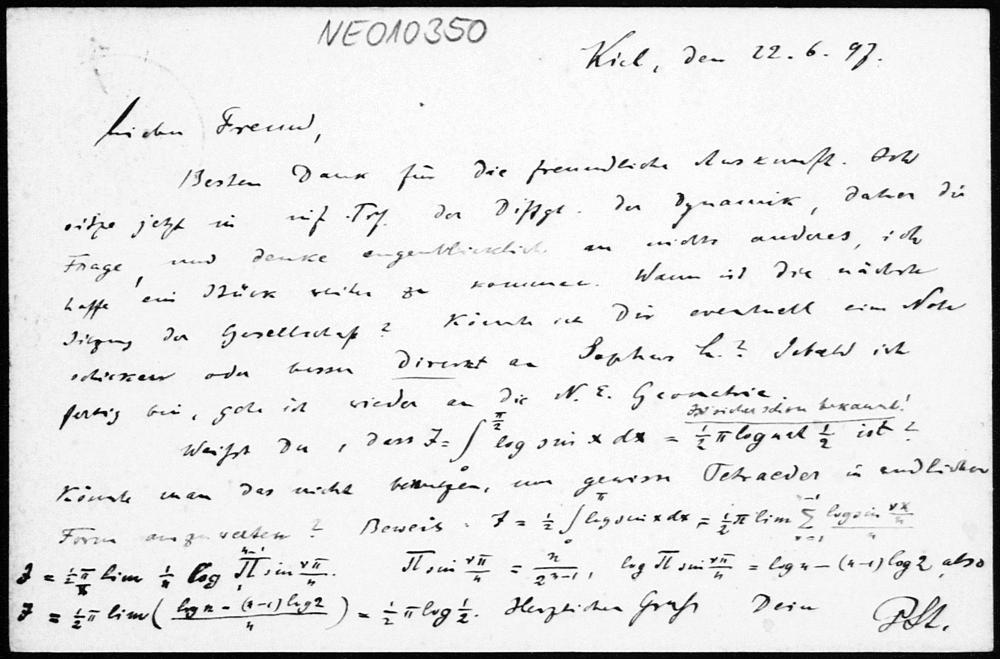 NE010350
Kiel, den 22.6.97.
Lieber Freund,
Besten Dank für die freundliche Auskunft. Ich
sitze jetzt in inf. Trf. der Diffgl. der Dynamik, daher die
Frage, und denke augenblicklich an nichts anderes, ich
hoffe ein Stück weiter zu kommen. Wann ist die nächste
Sitzung der Gesellschaft? Könnte ich Dir eventuell eine Note
schicken oder besser direkt an Sophus L.? Sobald ich
fertig bin, gehe ich wieder an die N. E. Geometrie.
Ist sicher schon bekannt!
Weißt Du, dass J = ∫₀^{π/2} log sin x dx = ½ π log nat ½ ist?
Könnte man das nicht benutzen, um gewisse Tetraeder in endlicher
Form auszuwerten? Beweis. J = ½ ∫₀^π log sin x dx = ½ π lim Σ_{ν=1}^{n-1} log sin (νπ/n) / n
J = ½ π lim 1/n log Π₁^{n-1} sin νπ/n. Π sin νπ/n = n/2^{n-1}, log Π sin νπ/n = log n − (n−1) log 2, also
J = ½ π lim ( (log n − (n−1) log 2) / n ) = ½ π log ½. Herzlichen Gruß Dein P. St.